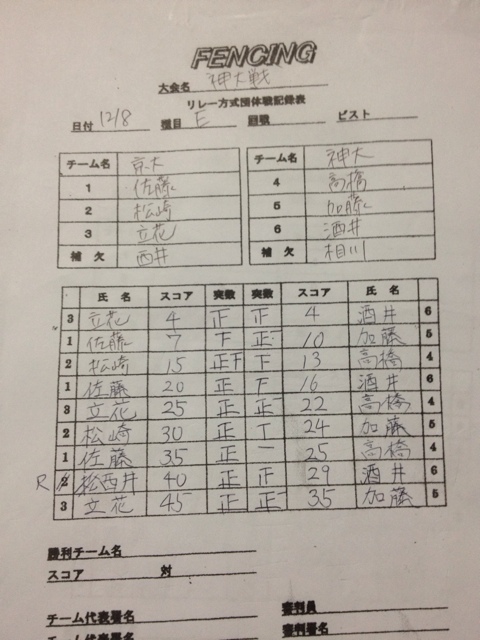 FENCING
大会名 神大戦
リレー方式団体戦記録表
日付 12/8 種目 E 回戦 ピスト
チーム名 京大 チーム名 神大
1 佐藤 4 高橋
2 松崎 5 加藤
3 立花 6 酒井
補欠 西井 補欠 相川
氏名 スコア 実数 実数 スコア 氏名
3 立花 4 正 正 4 酒井 6
1 佐藤 7 下 正 10 加藤 5
2 松崎 15 正下 下 13 高橋 4
1 佐藤 20 正 下 16 酒井 6
3 立花 25 正 正 22 高橋 4
2 松崎 30 正 丅 24 加藤 5
1 佐藤 35 正 一 25 高橋 4
R 西井 40 正 正 29 酒井 6
3 立花 45 正 正 35 加藤 5
勝利チーム名
スコア 対
チーム代表署名 審判員
チーム代表署名 審判署名